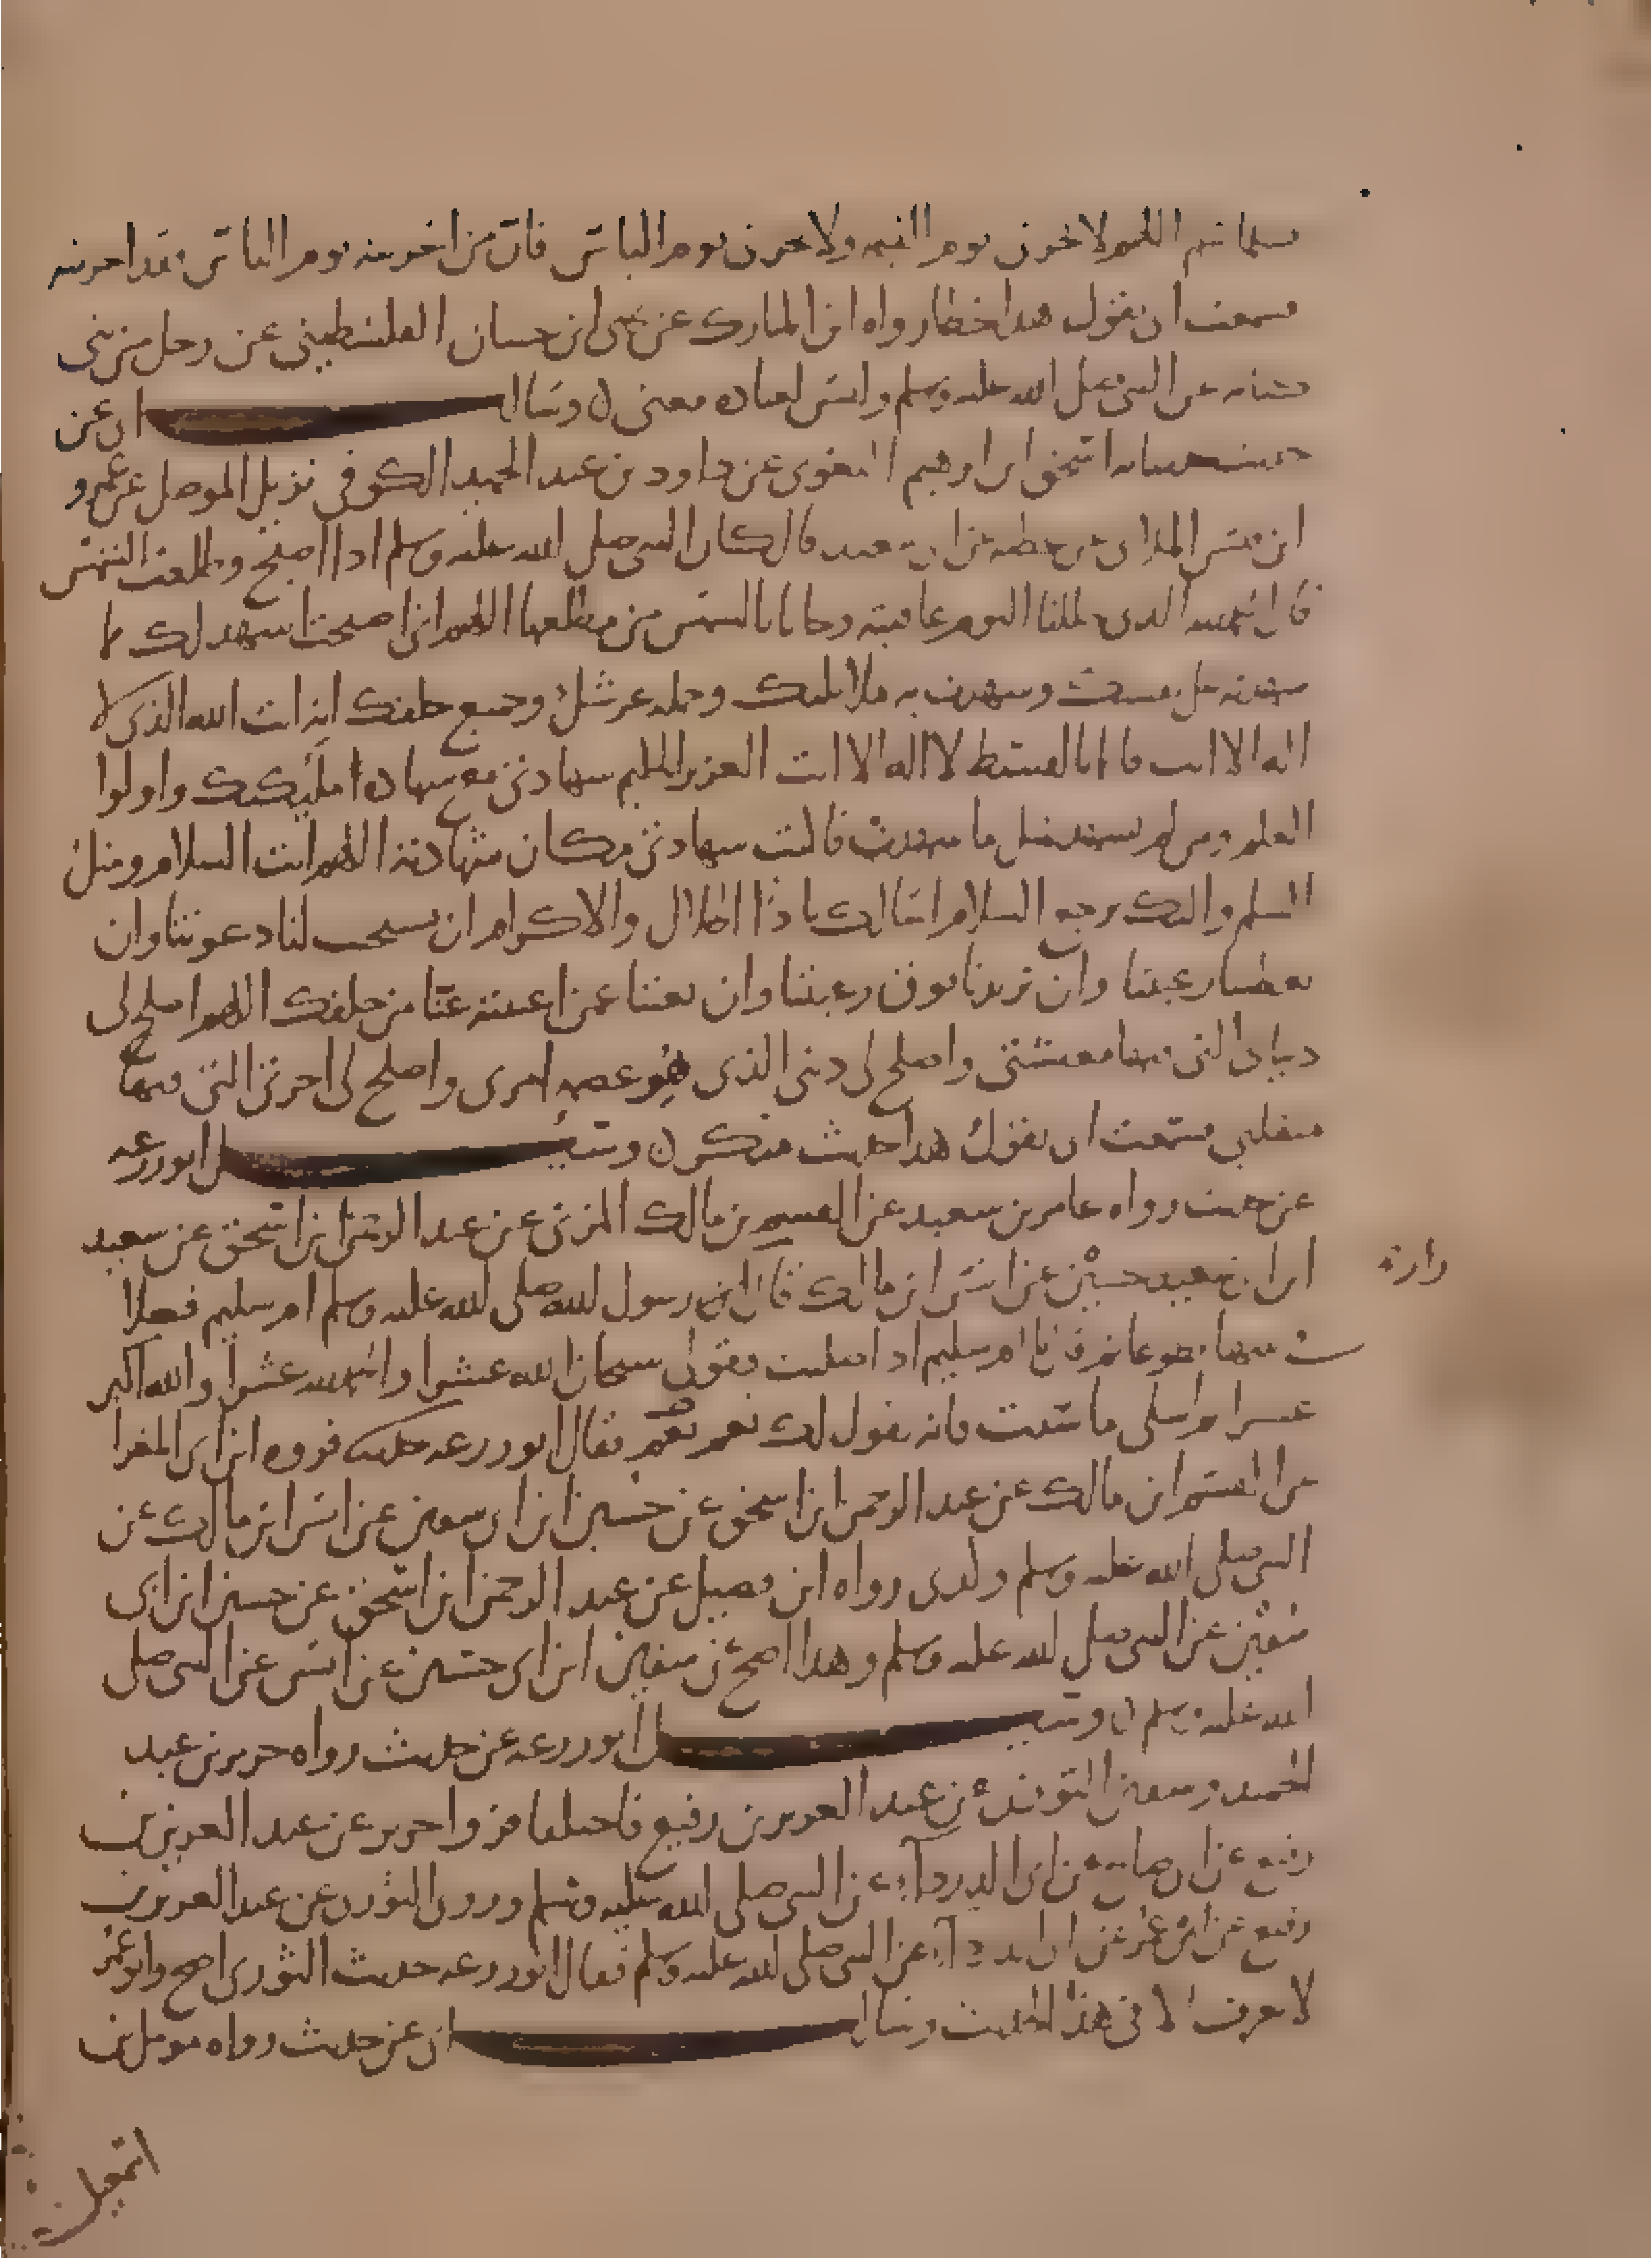 اللهم لا تخزنى يوم القيمة ولا تخزنى يوم الباس فان من اخزيته يوم الباس فقد اخزيته
فسمعت ابى يقول هذا خطا رواه ابن المبارك عن يحيى ابن حسان الفلسطينى عن رجل من بنى
كنانه عن النبى صلى الله عليه وسلم وليس لعباده معنى ن وسالت ابى عن
حديث اسحق ابن ابرهيم البغوى عن داود بن عبد الحميد الكوفى نزيل الموصل عن عمرو
ابن قيس الملاى عن عطيه عن ابى سعيد قال كان النبى صلى الله عليه وسلم اذا اصبح وطلعت الشمس
قال الحمد لله الذى جللنا اليوم عافيته وجانا بالشمس من مطلعها اللهم انى اصبحت اشهد لك بما
شهدت به على نفسك وشهدت به ملائكتك وحمله عرشك وجميع خلقك انك انت الله الذى لا
اله الا انت قائما بالقسط لا اله الا انت العزيز الحكيم شهادتى مع شهاده املئيكتك واولوا
العلم ومن لم يشهد مثل ما شهدت فاكتب شهادتى مكان شهادته اللهم انت السلام ومنك
السلم واليك يرجع السلام اسالك يا ذا الجلال والاكرام ان تستجيب لنا دعوتنا وان
تعطينا رغبتنا وان تزيدنا فوق رغبتنا وان تغننا عمن اغنيته عنا من خلقك اللهم اصلح لى
دنياى التى فيها معيشتى واصلح لى دينى الذى هو عصمه امرى واصلح لى اخرتى التى فيها
منقلبى فسمعت ابى يقول هذا حديث منكر ن وسيل ابو زرعه
عن حديث رواه عامر بن سعيد عن القسم بن مالك المزنى عن عبد الرحمن ابن اسحق عن سعيد
حسين عن انس ابن مالك قال رسول الله صلى الله عليه وسلم ام سليم فصلا
فى بيتها تطوعا ثم قال يا ام سليم اذا صليت فقولى سبحان الله عشرا والحمد لله عشرا والله اكبر
عشرا ثم اسلى ما شئت فانه يقول لك نعم نعم فقال ابو زرعه فروه ابن ابى المغرا
عن القسم ابن مالك عن عبد الرحمن ابن اسحق عن حسين ابن ابى سفين عن انس ابن مالك عن
النبى صلى الله عليه وسلم وكذى رواه ابن فضيل عن عبد الرحمن ابن اسحق عن حسين ابن ابى
سفين عن النبى صلى الله عليه وسلم وهذا اصح عن سفين ابن ابى حسين عن انس عن النبى صلى
الله عليه وسلم ن وسيل ابو زرعه عن حديث رواه جرير بن عبد
الحميد وسفين الثورى عن عبد العزيز بن رفيع فاختلفا فروا جرير عن عبد العزيز بن
رفيع عن ابى صالح عن ابى الدرداء عن النبى صلى الله عليه وسلم وروى الثورى عن عبد العزيز بن
رفيع عن ابى عمر عن ابى الدرداء عن النبى صلى الله عليه وسلم فقال ابو زرعه حديث الثورى اصح وابو عمر
لا يعرف الا فى هذا الحديث وسالت ابى عن حديث رواه مومل بن
اسمعيل